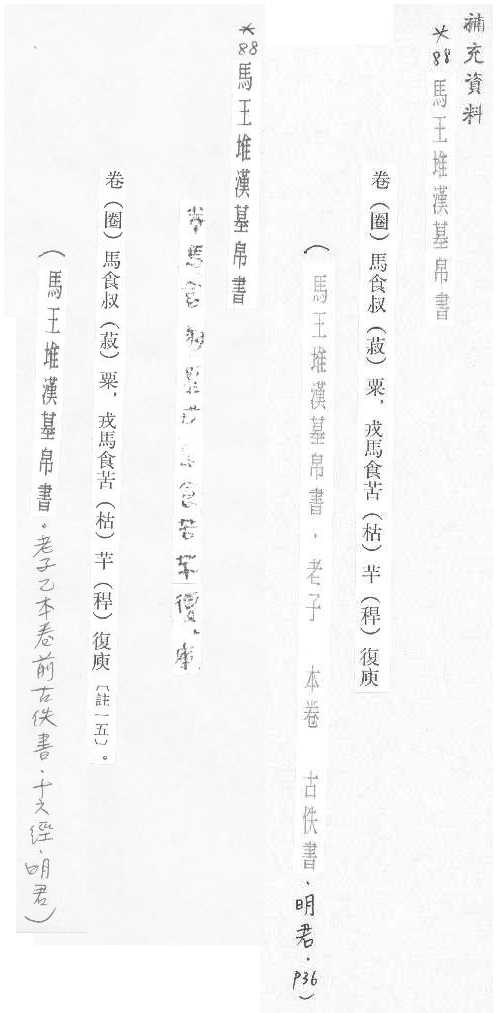 補充資料
*88 馬王堆漢墓帛書
卷（圈）馬食叔（菽）粟，戎馬食苦（枯）芉（稈）復庾
（馬王堆漢墓帛書．老子 本卷 古佚書．明君．P36）
*88 馬王堆漢墓帛書
卷馬食叔粟戎馬食苦芉復庾
卷（圈）馬食叔（菽）粟，戎馬食苦（枯）芉（稈）復庾〔註一五〕。
（馬王堆漢墓帛書。老子乙本卷前古佚書．十六經．明君）